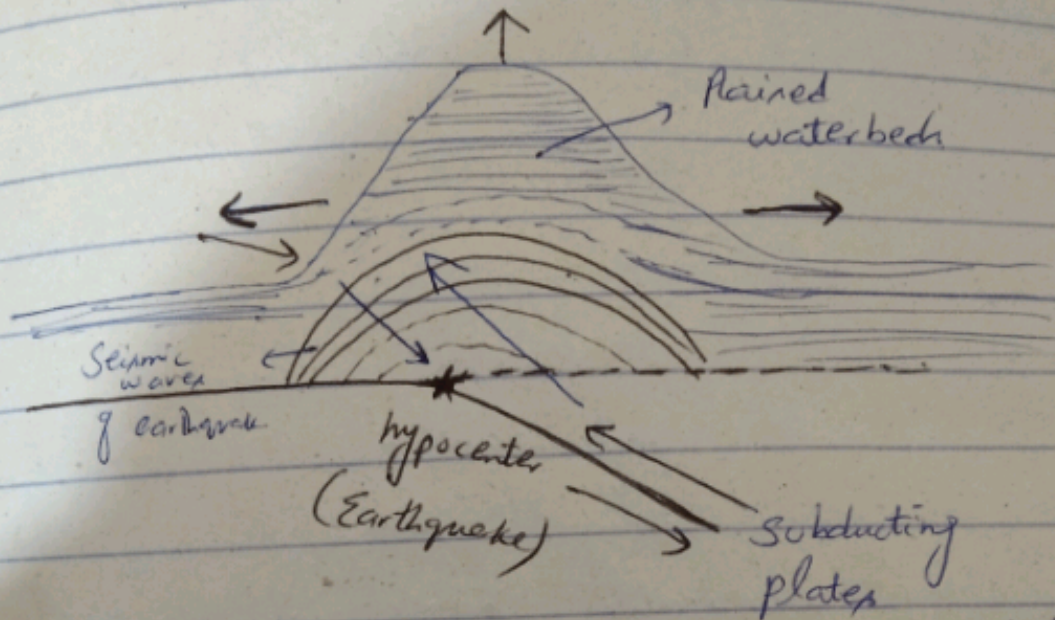 Rained
waterbed
Seismic
waves
of earthquak
hypocenter
(Earthquake)
subducting
plates